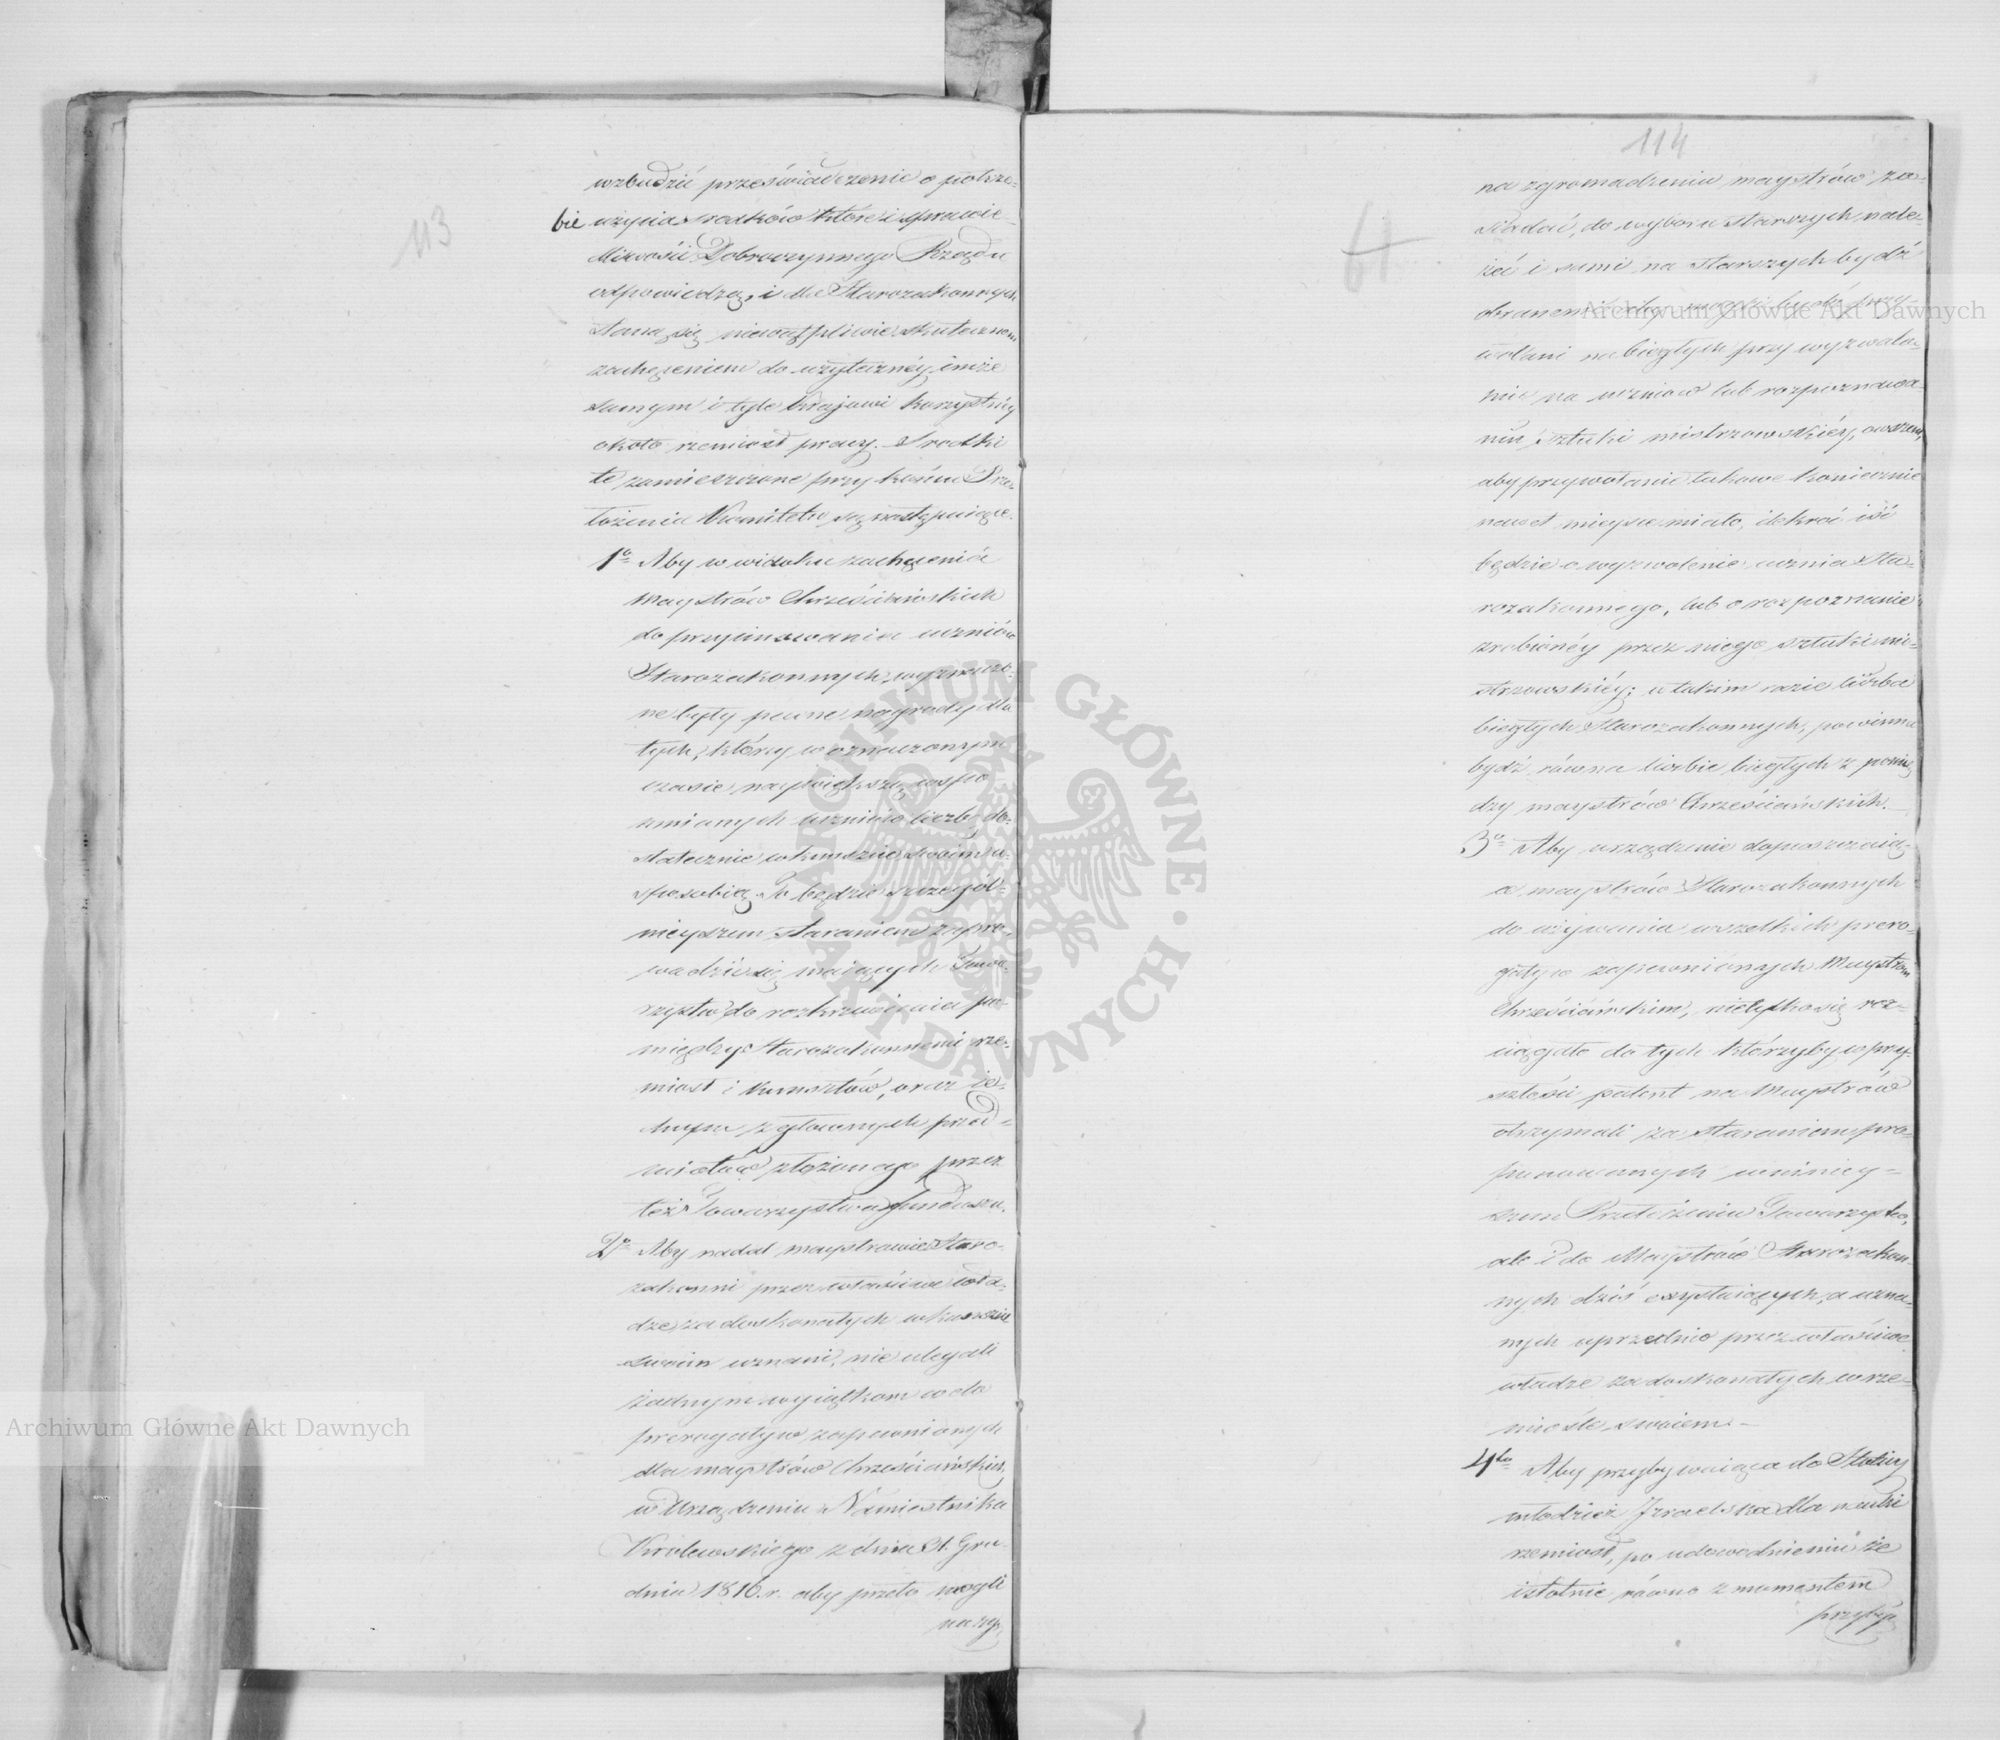 113
wzbudzić przeświadczenie o potrze-
bie użycia srodków które i sprawie-
dliwości Dobroczynnego Rządu
odpowiedzą, i dla Starozakonnych
staną się niewątpliwie skutecznem
zachęceniem do użytecznéy im że
samym i tyle Krajowi korzystnéy
około rzemiosł pracy. Srodki
te zamieszczone przy końcu Przed-
łożenia Komitetu są następuiące.
1o Aby w widoku zachęcenia
Maystrów Chrześciańskich
do przyimowania uczniów
Starozakonnych, wyznaczo-
ne były pewne nagrody dla
tych, którzy w oznaczonym
czasie naywiększą wspo
mnianych uczniów liczbę do-
statecznie w kunszcie swoim u-
sposobią. To będzie szczegól-
nieyszem staraniem zapro-
wadzić się maiących Towa-
rzystw do rozkrzewienia po-
między Starozakonnemi rze-
miosł i kunsztów, oraz ie-
dnym z głownych przed-
miotów złożonego przez
też Towarzystwa funduszu.
2o Aby nadal maystrowie Staro-
zakonni przez właściwe wła-
dze za doskonałych w kunszcie
swoim uznani, nie ulegali
żadnym wyiątkom w do
prerogatyw zapewnionych
dla maystrów Chrześciańskich
w Urządzeniu Namiestnika
Królewskiego z dnia 31. Gru-
dnia 1816. r. aby przeto mogli
na zg
114
61
na zgromadzeniu maystrów za-
siadać, do wyboru starszych nale-
żeć i sami na starszych bydź
obranemi, aby mogli bydź przy-
wołani na biegłych przy wyzwala-
niu na uczniów lub rozpoznawa-
niu sztuki mistrzowskiéy, owszem,
aby przywołanie takowe koniecznie
nawet mieysce miało, ilekroć iść
będzie o wyzwolenie ucznia Sta-
rozakonnego, lub o rozpoznanie
zrobionéy przez niego sztuki mi-
strzowskiéy; w takim razie liczba
biegłych Starozakonnych, powinna
bydź równa liczbie biegłych z pomię
dzy maystrów Chrześciańskich.
3o Aby urządzenie dopuszczaią-
ce maystrów Starozakonnych
do używania wszelkich prero-
gatyw zapewnionych Maystrom
Chrześciańskim, nietylko się roz-
ciągało do tych którzyby w przy-
szłości patent na Maystrów
otrzymali za staraniem pro-
ponowanych w niniey-
szem Przedłożeniu Towarzystw,
ale i do Maystrów Starozakon-
nych dziś exystuiących, a uzna-
nych uprzednio przez właściwe
władze za doskonałych w rze-
miośle swoiem. -
4to Aby przybywaiąca do Stolicy
młodzież Izraelska dla nauki
rzemiosł, po udowodnieniu że
istotnie równo z momentem
przyby
Archiwum Główne Akt Dawnych
Archiwum Główne Akt Dawnych
ARCHIWUM GŁÓWNE • AKT DAWNYCH •